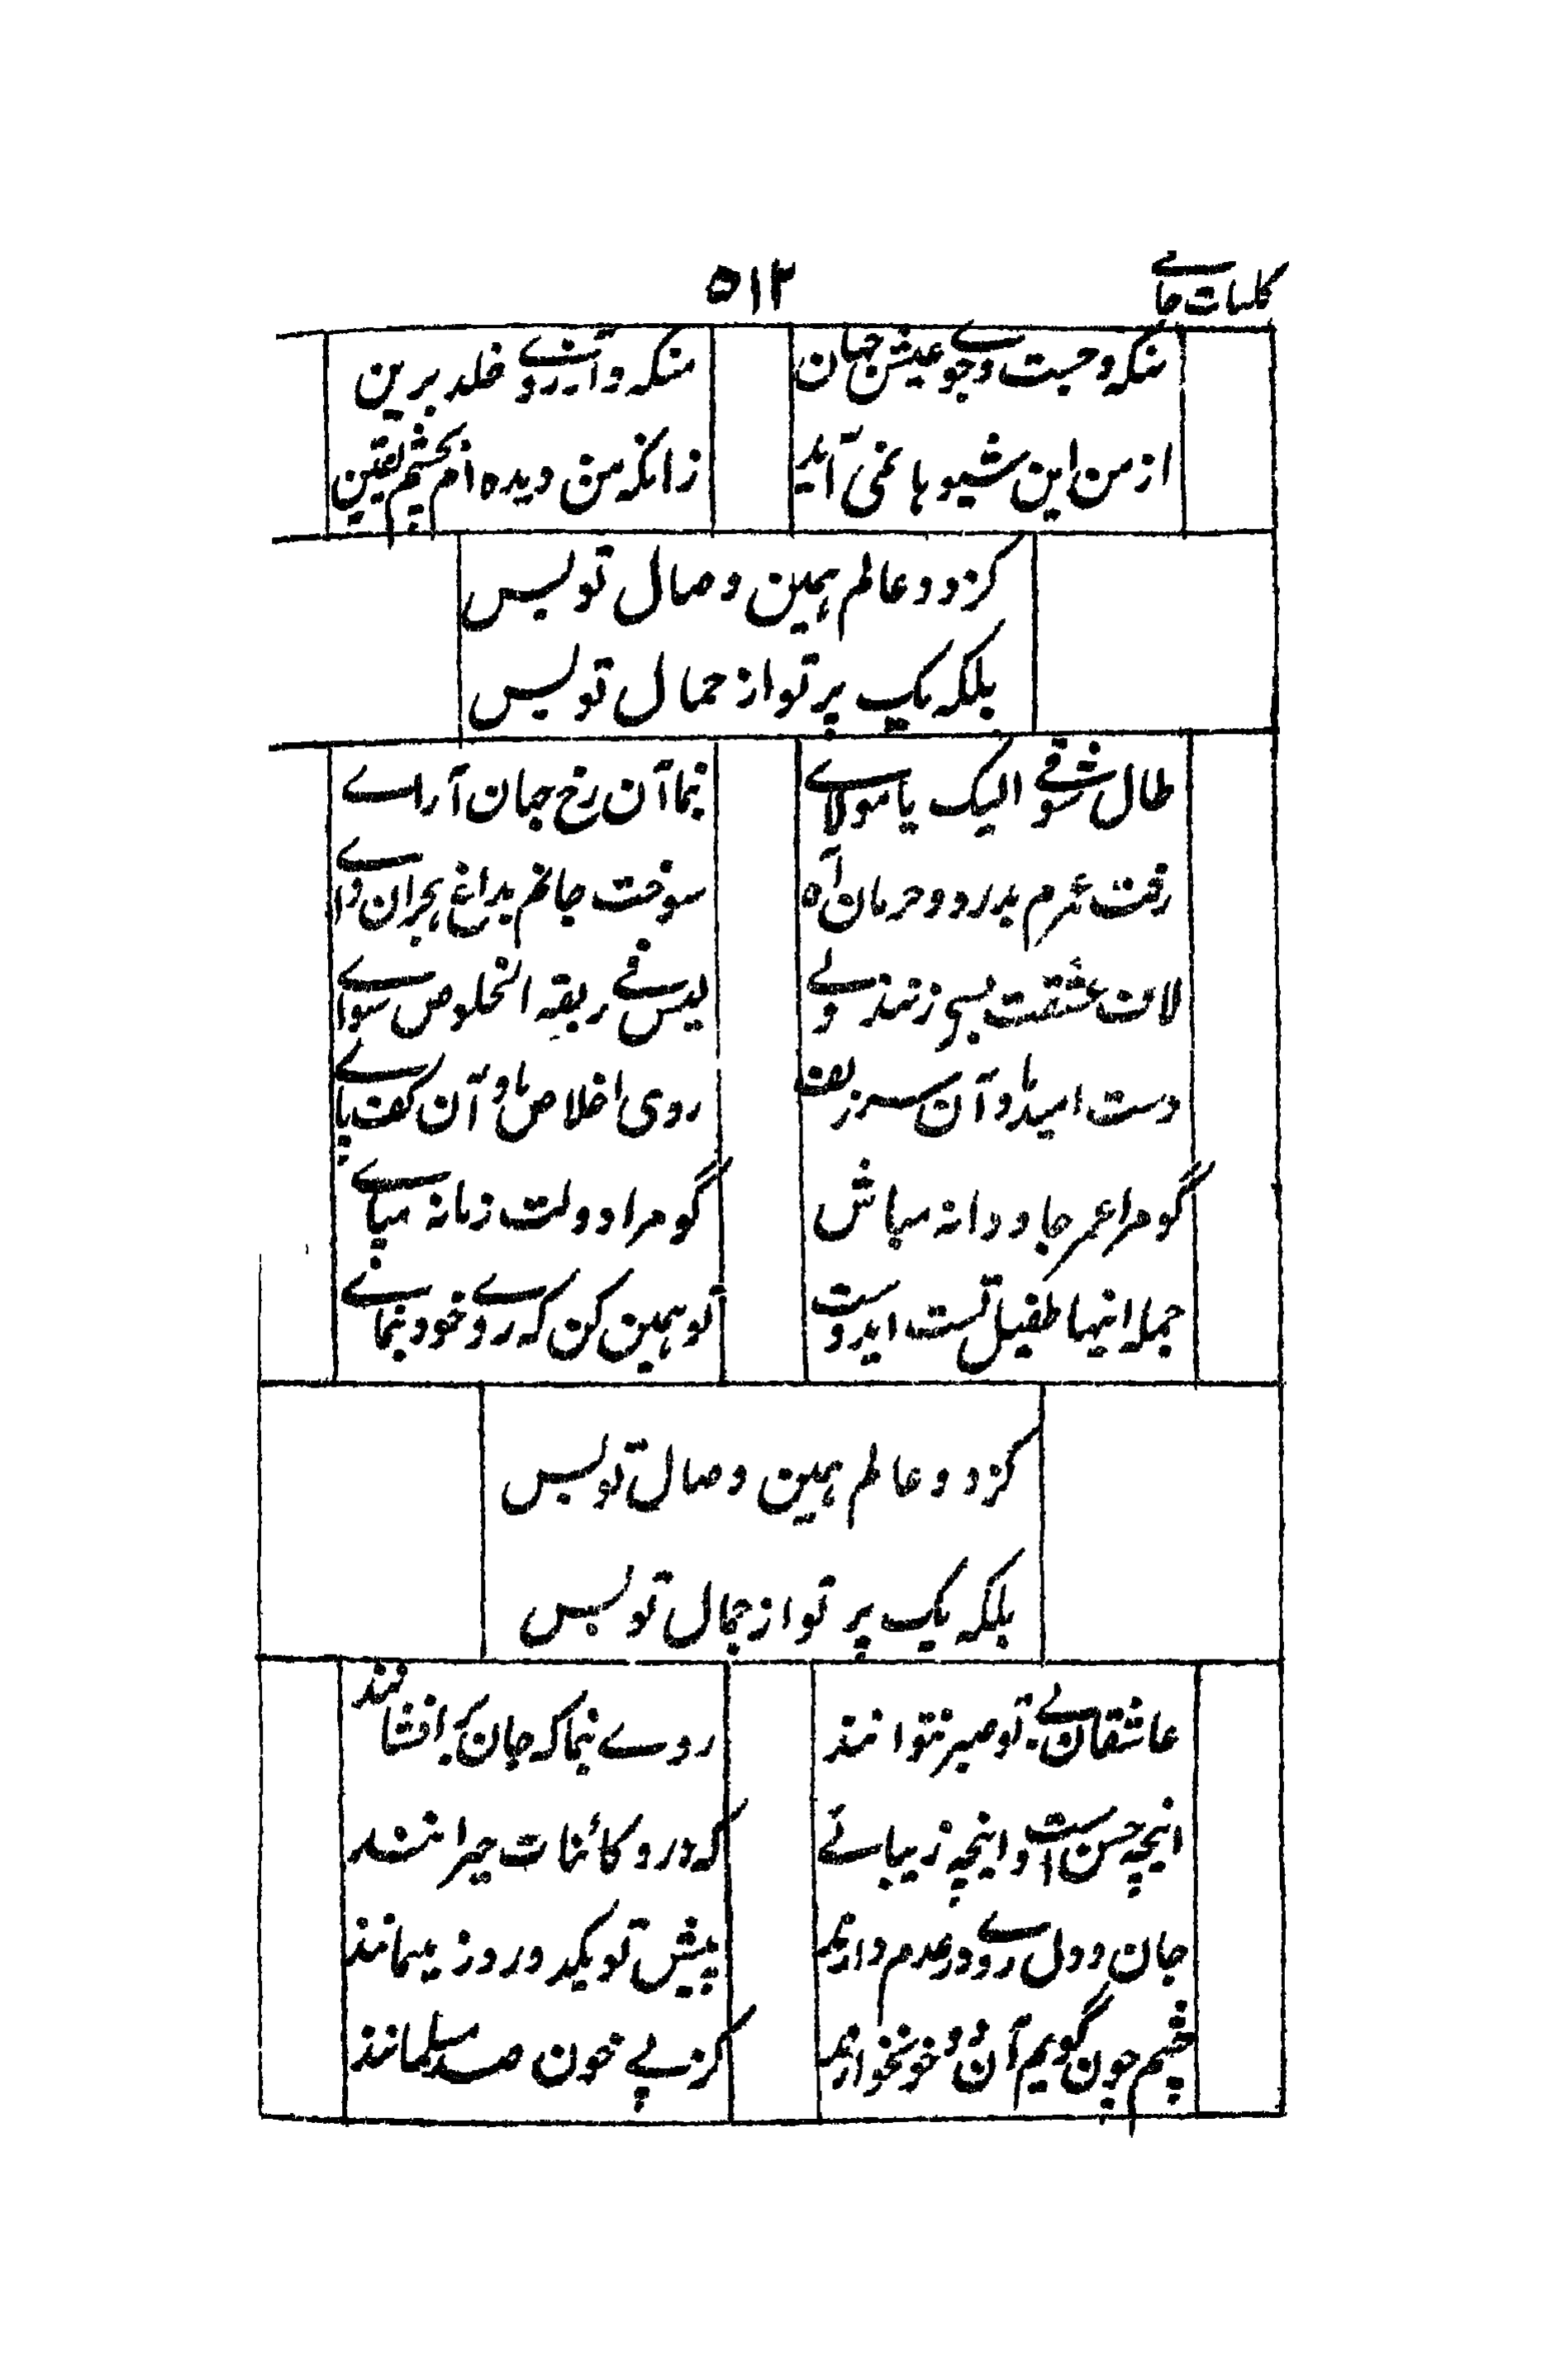 کلیات جامے
۵۱۲
منکہ و جست وجوے عیش جهان
منکہ و آرزوے خلد برین
از من این شیوہا نمی آید
زانکہ من دیدہ ام بچشم یقین
کز دو عالم ہمین وصال تو بس
بلکہ یک پرتو از جمال تو بس
طال شوقے الیک یا مولاے
بنما آن رخ جهان آراے
رفت عمرم بدرد و حرمان آہ
سوخت جانم بداغ ہجران واے
لاف عشقت بسے زنند ولے
لیس فے ربقہ الخلوص سواے
دست امید ما و آن سر زلف
روی اخلاص ما و آن کف پاے
گو مرا عمر جاودانہ مباش
گو مرا دولت زمانہ مپاے
جملہ اینها طفیل تست ایدوست
تو ہمین کن کہ روے خود بنماے
کز دو عالم ہمین وصال تو بس
بلکہ یک پرتو از جمال تو بس
عاشقان بے تو صبر نتوانند
روے بنما کہ جان بر افشانند
اینچہ حسن است و اینچہ زیبائے
کہ درو کائنات حیرانند
جان و دل روے در عدم دارند
پیش تو یکدو روز مهمانند
چشم چون گویم آن دو خونخوارند
کز پے خون صد مسلمانند